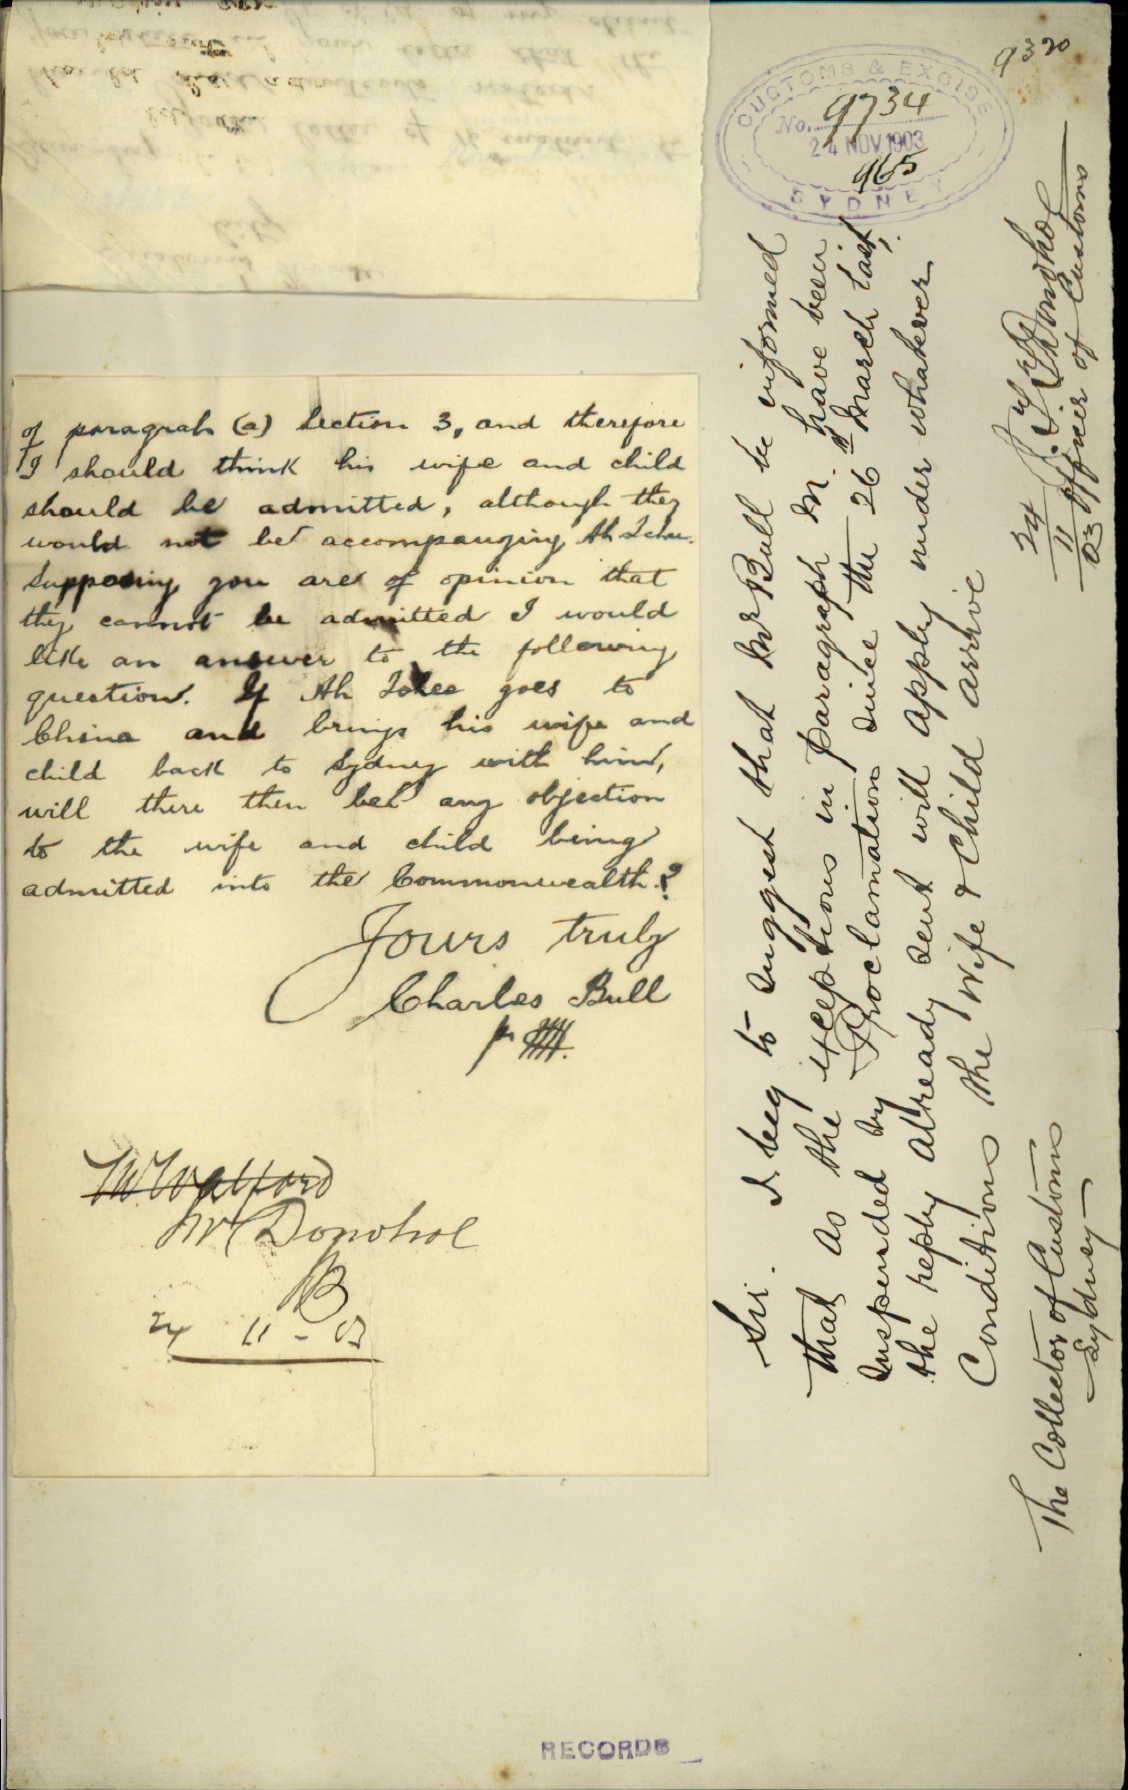 of paragraph (a) Section 3, and therefore
I should think his wife and child
should be admitted, although they
would not be accompanying Ah
Supposing you are of opinion that
they cannot be admitted I would
like an answer to the following
question. If Ah goes to
China and brings his wife and
child back to Sydney with him,
will there then be any objection
to the wife and child being
admitted into the Commonwealth?
Yours truly
Charles Bull
Mr Donohoe
24 11-03
9320
CUSTOMS & EXCISE
No. 9734
24 NOV 1903
965
SYDNEY
Sir. I beg to suggest that Mr Bull be informed
that as the exceptions in paragraph M. have been
suspended by Proclamation since the 26th March last,
the reply already sent will apply under whatever
Conditions the Wife & Child arrive
Donohoe
24/11/03 Officer of Customs
The Collector of Customs
Sydney
RECORDS